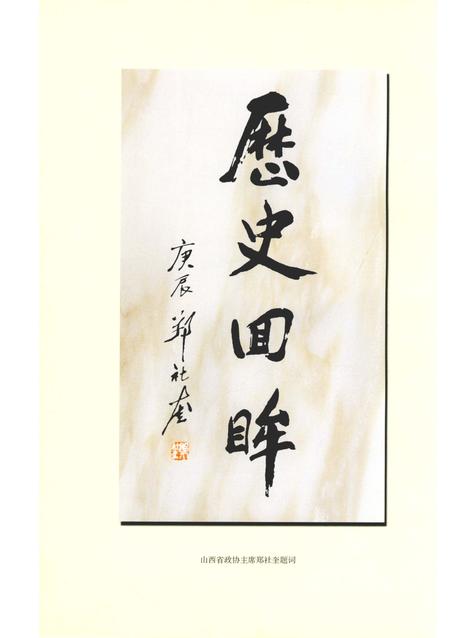 歷史回眸
庚辰 鄭社奎
山西省政协主席郑社奎题词